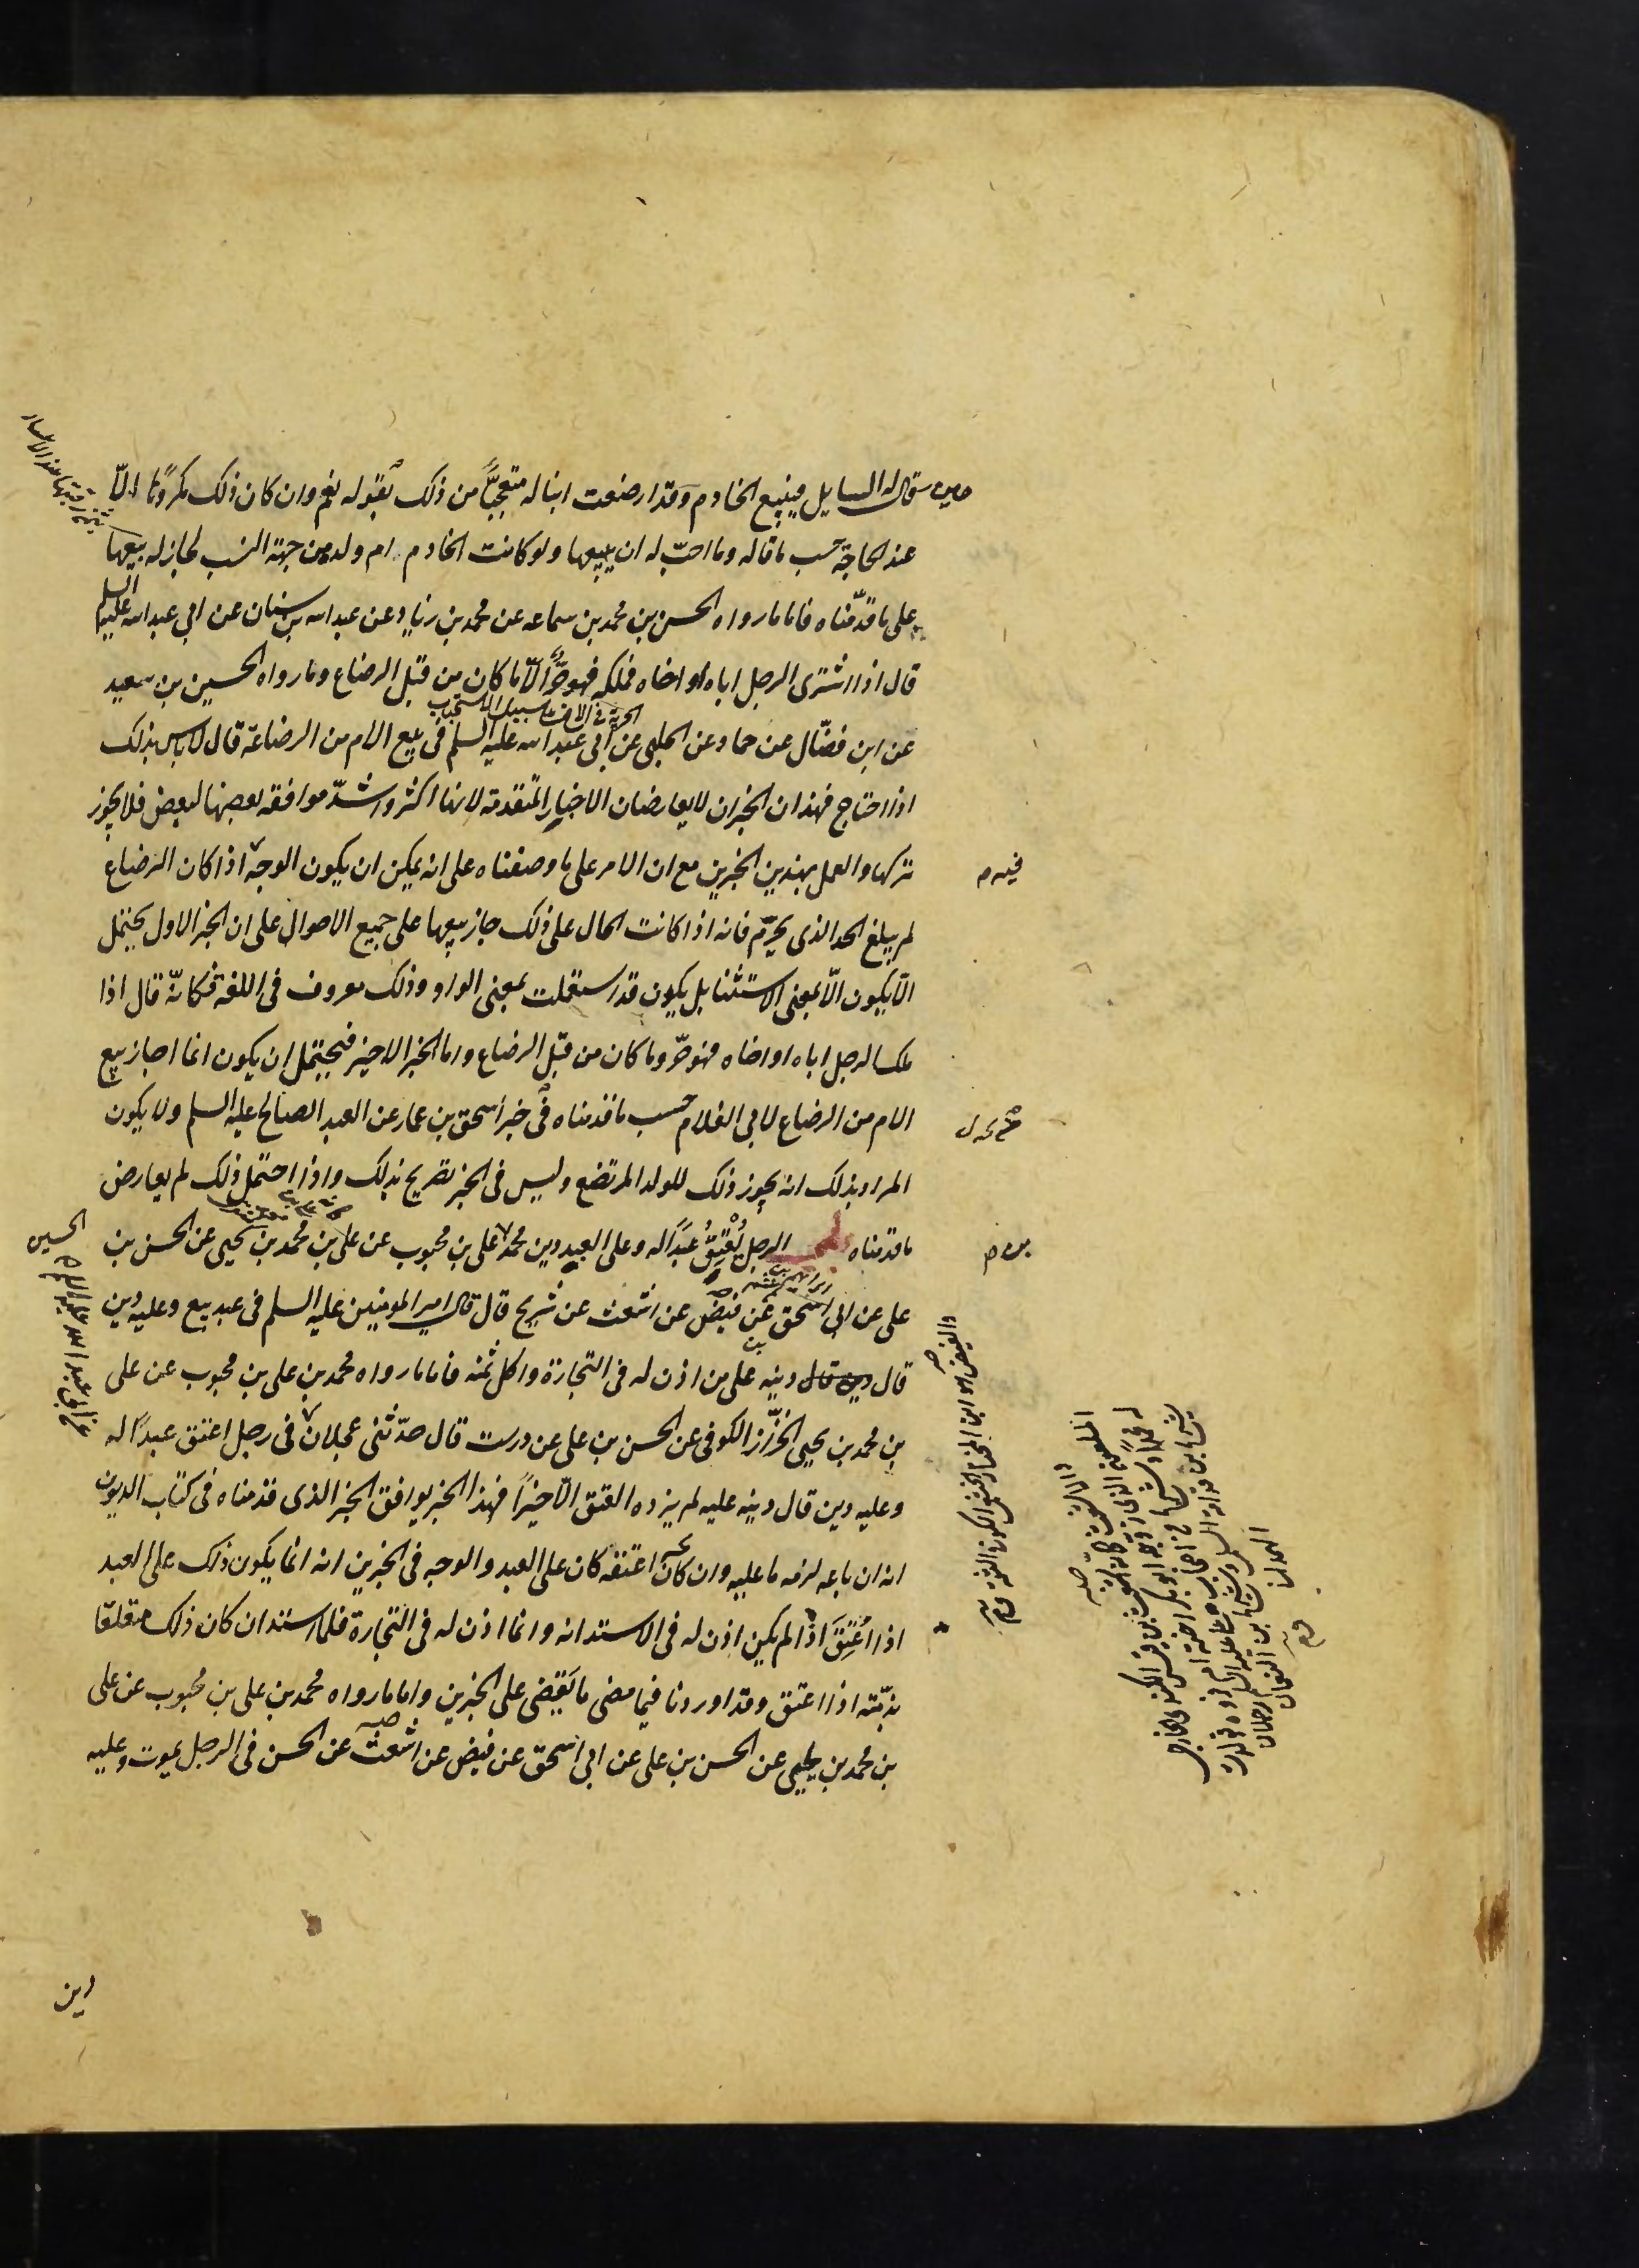 حين قال له السايل فيبيع الخادم وقد ارضعت ابنا له متعجبًا من ذلك بقوله نعم وان كان ذلك مكروهًا الّا
عند الحاجة حسب ما قاله وما احبّ له ان يبيعها ولو كانت الخادم ام ولد من جهة النسب لجاز له بيعها
على ما قدّمناه فاما ما رواه الحسن بن محمد بن سماعه عن محمد بن زياد عن عبد الله بن سنان عن ابي عبد الله عليه السلم
قال اذا اشترى الرجل اباه او اخاه فملكه فهو حرٌّ الّا ما كان من قبل الرضاع وما رواه الحسين بن سعيد
عن ابن فضّال عن حماد عن الحلبي عن ابي عبد الله عليه السلم في بيع الام من الرضاعة قال لا باس بذلك
اذا احتاج فهذان الخبران لا يعارضان الاخبار المتقدمة لانها اكثر واشدّ موافقه بعضها لبعض فلا يجوز
تركها والعمل بهذين الخبرين مع ان الامر على ما وصفناه على انه يمكن ان يكون الوجه اذا كان الرضاع
لم يبلغ الحد الذى يحرّم فانه اذا كانت الحال على ذلك جاز بيعها على جميع الاحوال على ان الخبر الاول يحتمل
الّا يكون الّا بمعنى الاستثنا بل يكون قد استعملت بمعنى الواو وذلك معروف في اللغة فكانّه قال اذا
ملك الرجل اباه او اخاه فهو حرّ وما كان من قبل الرضاع واما الخبر الاخير فيحتمل ان يكون انما اجاز بيع
الام من الرضاع لابي الغلام حسب ما قدمناه في خبر اسحق بن عمار عن العبد الصالح عليه السلم ولا يكون
المراد بذلك انه يجوز ذلك للولد المرتضع وليس في الخبر تصريح بذلك واذا احتمل ذلك لم يعارض
ما قدمناه الرجل يُعْتِقُ عَبدًا له وعلى العبد دين محمد بن على بن محبوب عن على بن محمد بن يحيى عن الحسن بن
على عن ابي اسحق عن فيض عن اشعث عن شريح قال قال امير المومنين عليه السلم في عبد بيع وعليه دين
قال دين قال دينه على من اذن له في التجارة واكل ثمنه فاما ما رواه محمد بن على بن محبوب عن على
بن محمد بن يحيى الخزّاز الكوفى عن الحسن بن على عن درست قال حدّثنى عجلان في رجل اعتق عبدًا له
وعليه دين قال دينه عليه لم يزده العتق الّا خيرًا فهذا الخبر يوافق الخبر الذى قدمناه في كتاب الديون
انه ان باعه لزمه ما عليه وان كان اعتقه كان على العبد والوجه في الخبرين انه انما يكون ذلك على العبد
اذا اُعْتِقَ اذا لم يكن اذن له في الاستدانه وانما اذن له في التجارة فلما استدان كان ذلك متعلقا
بذمّته اذا اعتق وقد اوردنا فيما مضى ما يَقتضى على الخبرين واما ما رواه محمد بن على بن محبوب عن على
بن محمد بن يحيى عن الحسن بن على عن ابي اسحق عن فيض عن اشعث عن الحسن في الرجل يموت وعليه
دين